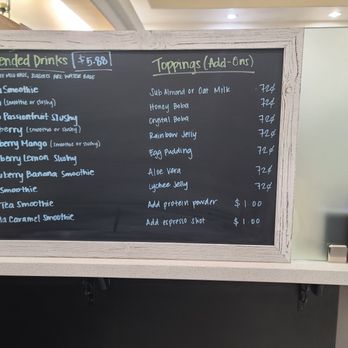 ended Drinks | $5.88
Smoothie
(smoothie or slushy)
Passionfruit Slushy
berry (smoothie or slushy)
berry Mango (smoothie or slushy)
berry Lemon Slushy
wberry Banana Smoothie
Smoothie
Tea Smoothie
la Caramel Smoothie
Toppings (Add-Ons)
Sub Almond or Oat Milk 72¢
Honey Boba 72¢
Crystal Boba 72¢
Rainbow Jelly 72¢
Egg Pudding 72¢
Aloe Vera 72¢
Lychee Jelly 72¢
Add protein powder $1.00
Add espresso shot $1.00